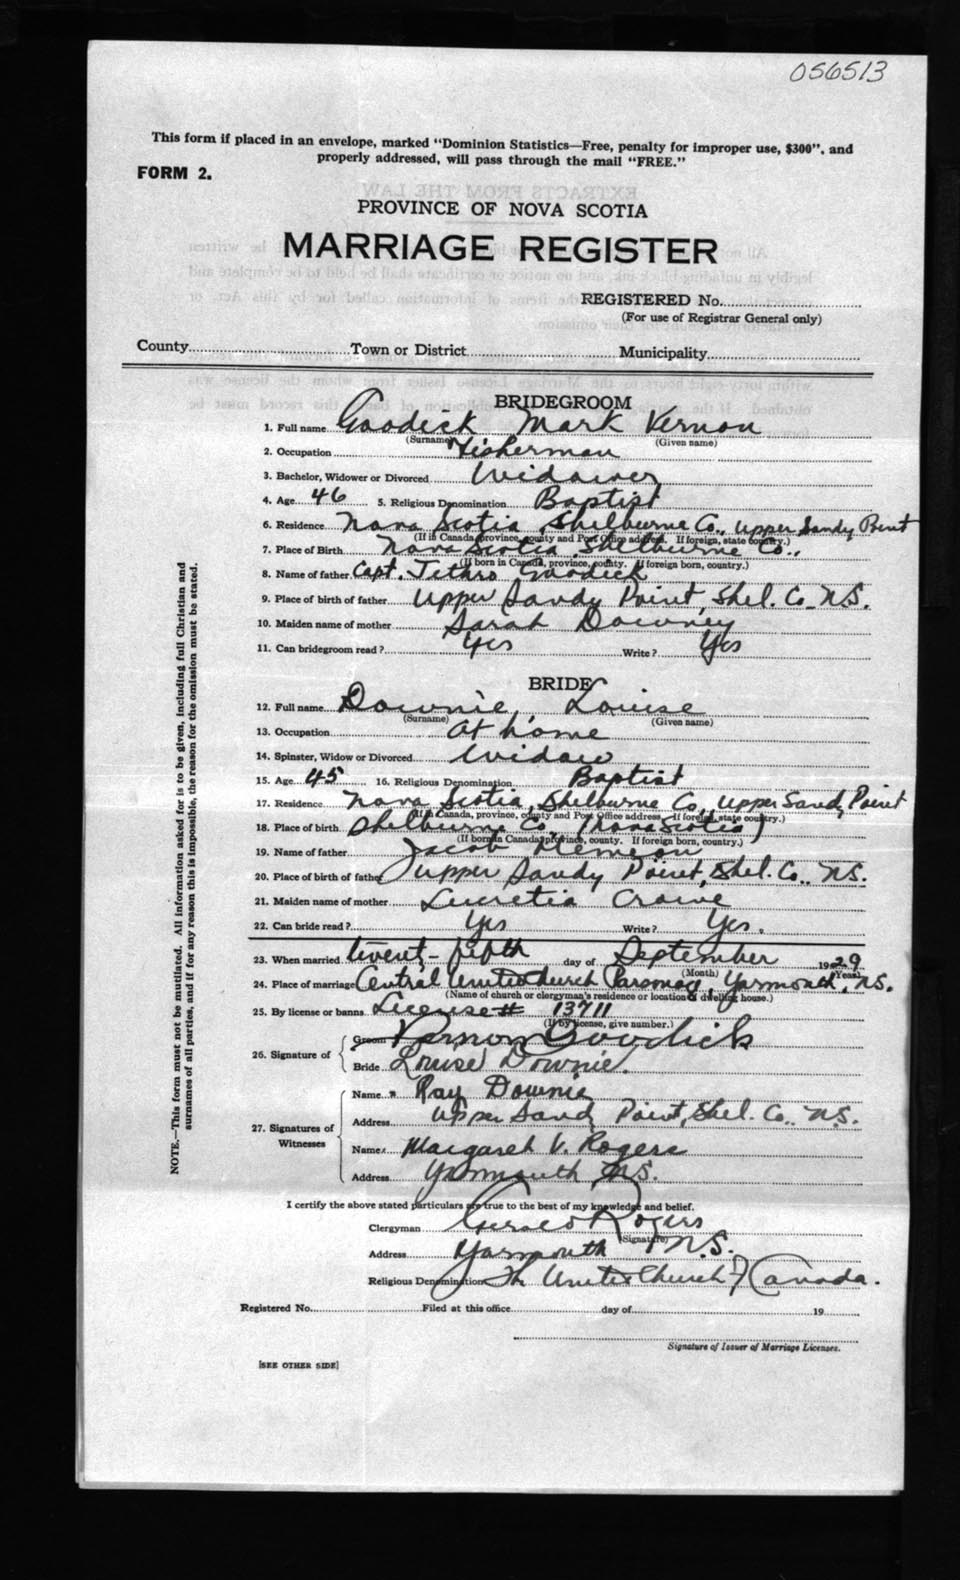 056513
This form if placed in an envelope, marked "Dominion Statistics—Free, penalty for improper use, $300", and
properly addressed, will pass through the mail "FREE."
FORM 2.
PROVINCE OF NOVA SCOTIA
MARRIAGE REGISTER
REGISTERED No.
(For use of Registrar General only)
County Town or District Municipality
BRIDEGROOM
1. Full name Goodick Mark Vernon
(Surname) (Given name)
2. Occupation Fisherman
3. Bachelor, Widower or Divorced Widower
4. Age 46 5. Religious Denomination Baptist
6. Residence Nova Scotia, Shelburne Co., Upper Sandy Point
(If in Canada, province, county and Post Office address. If foreign, state country.)
7. Place of Birth Nova Scotia, Shelburne Co.,
(If born in Canada, province, county. If foreign born, country.)
8. Name of father Capt. Jethro Goodick
9. Place of birth of father Upper Sandy Point, Shel. Co. N.S.
10. Maiden name of mother Sarah Downey
11. Can bridegroom read? Yes Write? Yes
BRIDE
12. Full name Downie, Louise
(Surname) (Given name)
13. Occupation At home
14. Spinster, Widow or Divorced Widow
15. Age 45 16. Religious Denomination Baptist
17. Residence Nova Scotia, Shelburne Co., Upper Sandy Point
(If in Canada, province, county and Post Office address. If foreign, state country.)
18. Place of birth Shelburne Co. (Nova Scotia)
(If born in Canada, province, county. If foreign born, country.)
19. Name of father Jacob
20. Place of birth of father Upper Sandy Point, Shel. Co., N.S.
21. Maiden name of mother Lucretia Crowe
22. Can bride read? Yes Write? Yes.
23. When married twenty-fifth day of September 1929
(Month) (Year)
24. Place of marriage Central United Church Parsonage, Yarmouth, N.S.
(Name of church or clergyman's residence or location of dwelling house.)
25. By license or banns License # 13711
(If by license, give number.)
26. Signature of
Groom Vernon Goodick
Bride Louise Downie.
27. Signatures of Witnesses
Name Ray Downie
Address Upper Sandy Point, Shel. Co., N.S.
Name Margaret V. Rogers
Address Yarmouth N.S.
I certify the above stated particulars are true to the best of my knowledge and belief.
Clergyman Gerald Rogers
(Signature)
Address Yarmouth N.S.
Religious Denomination The United Church of Canada.
Registered No. Filed at this office day of 19
Signature of Issuer of Marriage Licenses.
[SEE OTHER SIDE]
NOTE.—This form must not be mutilated. All information asked for is to be given, including full Christian and
surnames of all parties, and if for any reason this is impossible, the reason for the omission must be stated.